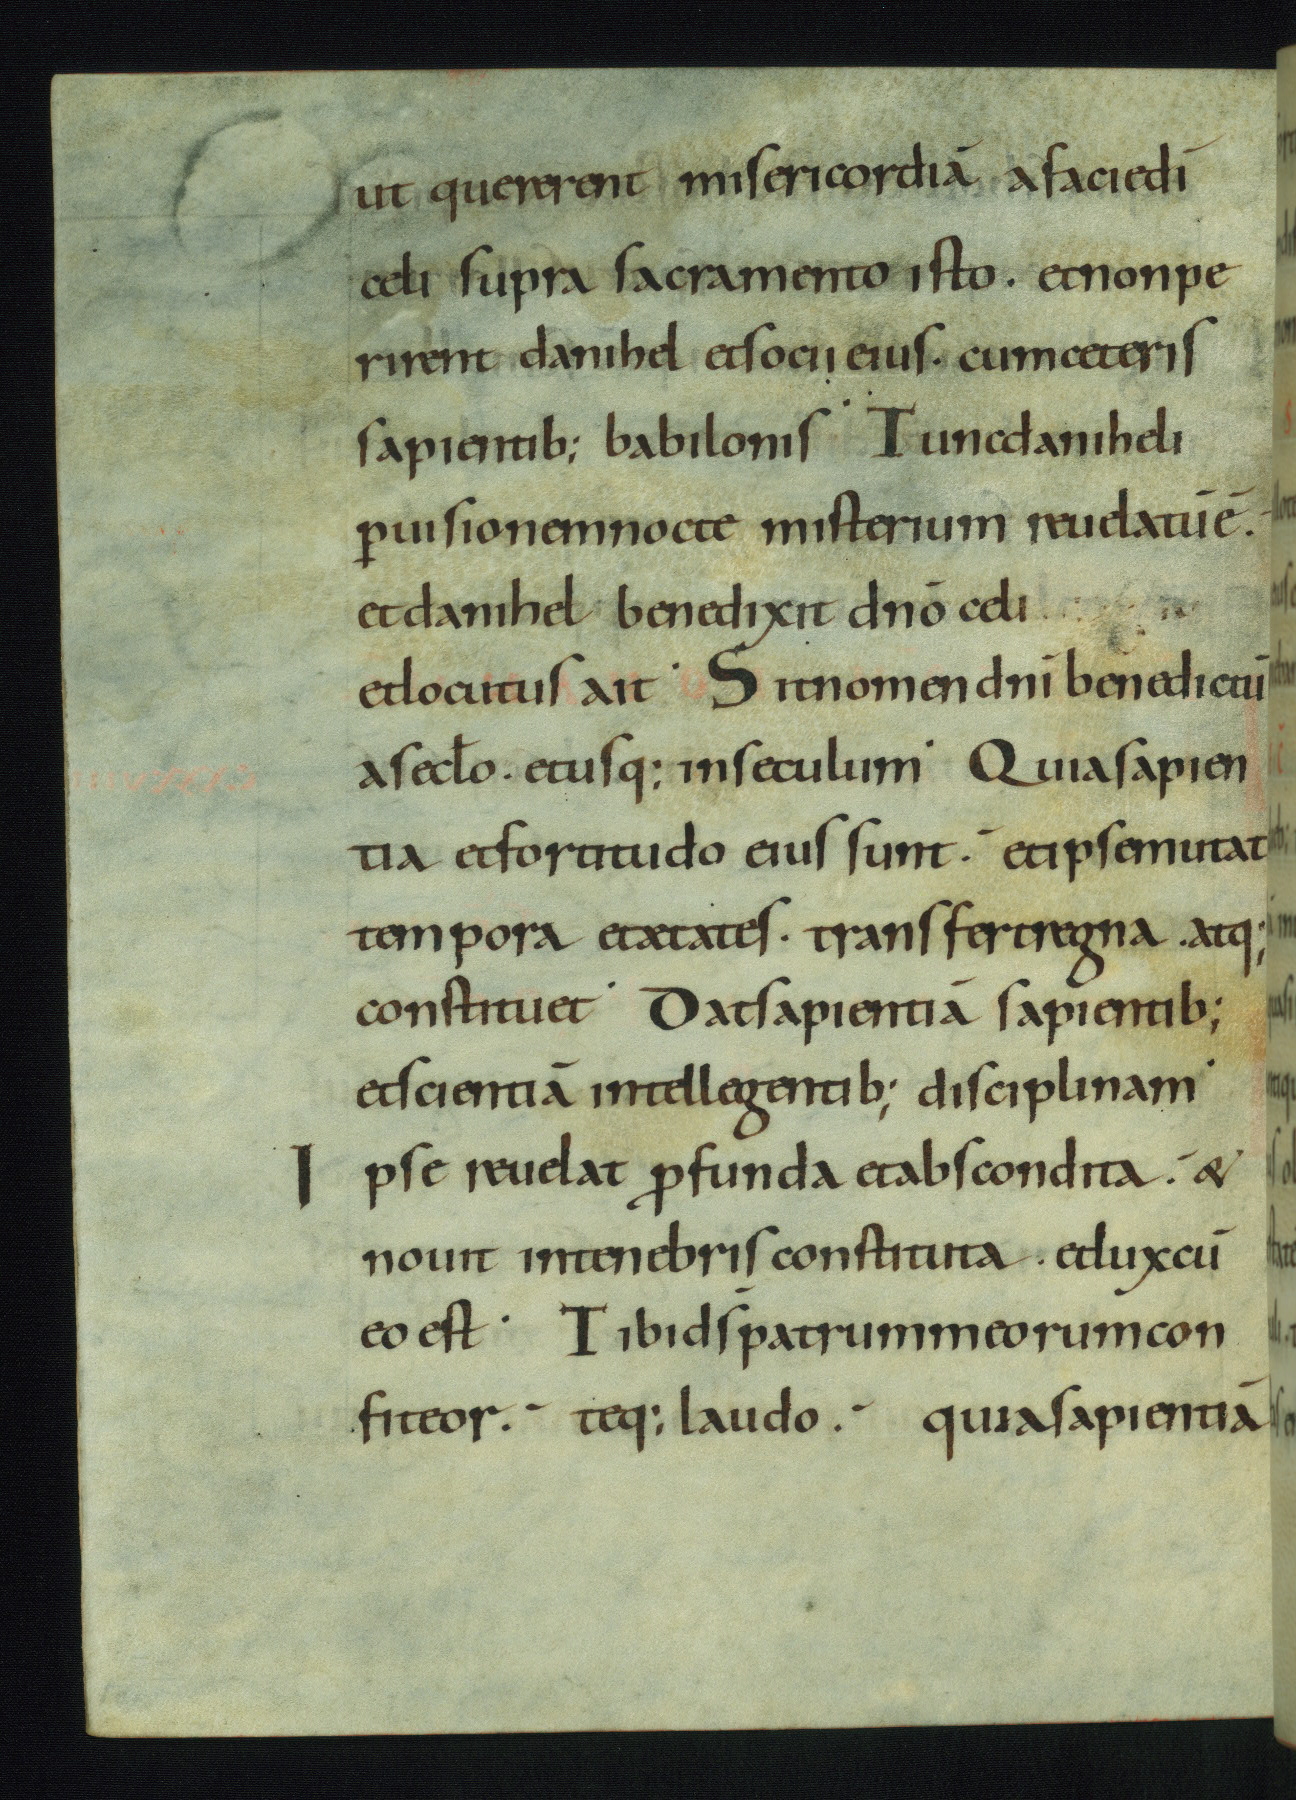 ut quererent misericordiā afaciedī
celi supra sacramento isto. etnonpe
rirent danihel etsocii eius. cumceteris
sapientib; babilonis· Tuncdaniheli
ꝑuisionemnocte misterium reuelatūē.
etdanihel benedixit dnō celi
etlocutus ait· Sitnomen dnī benedictū
asecło. etusq; inseculum· Quiasapien
tia etfortitudo eius sunt.- etipsemutat
tempora etætates. transfertregna .atq;
constituet· Datsapientiā sapientib;
etscientiā intellegentib; disciplinam·
Ipse reuelat ꝓfunda etabscondita.- &
nouit intenebris constituta. etluxcū
eo est· Tibids̄patrummeorumcon
fiteor.- teq; laudo.- quiasapientiā